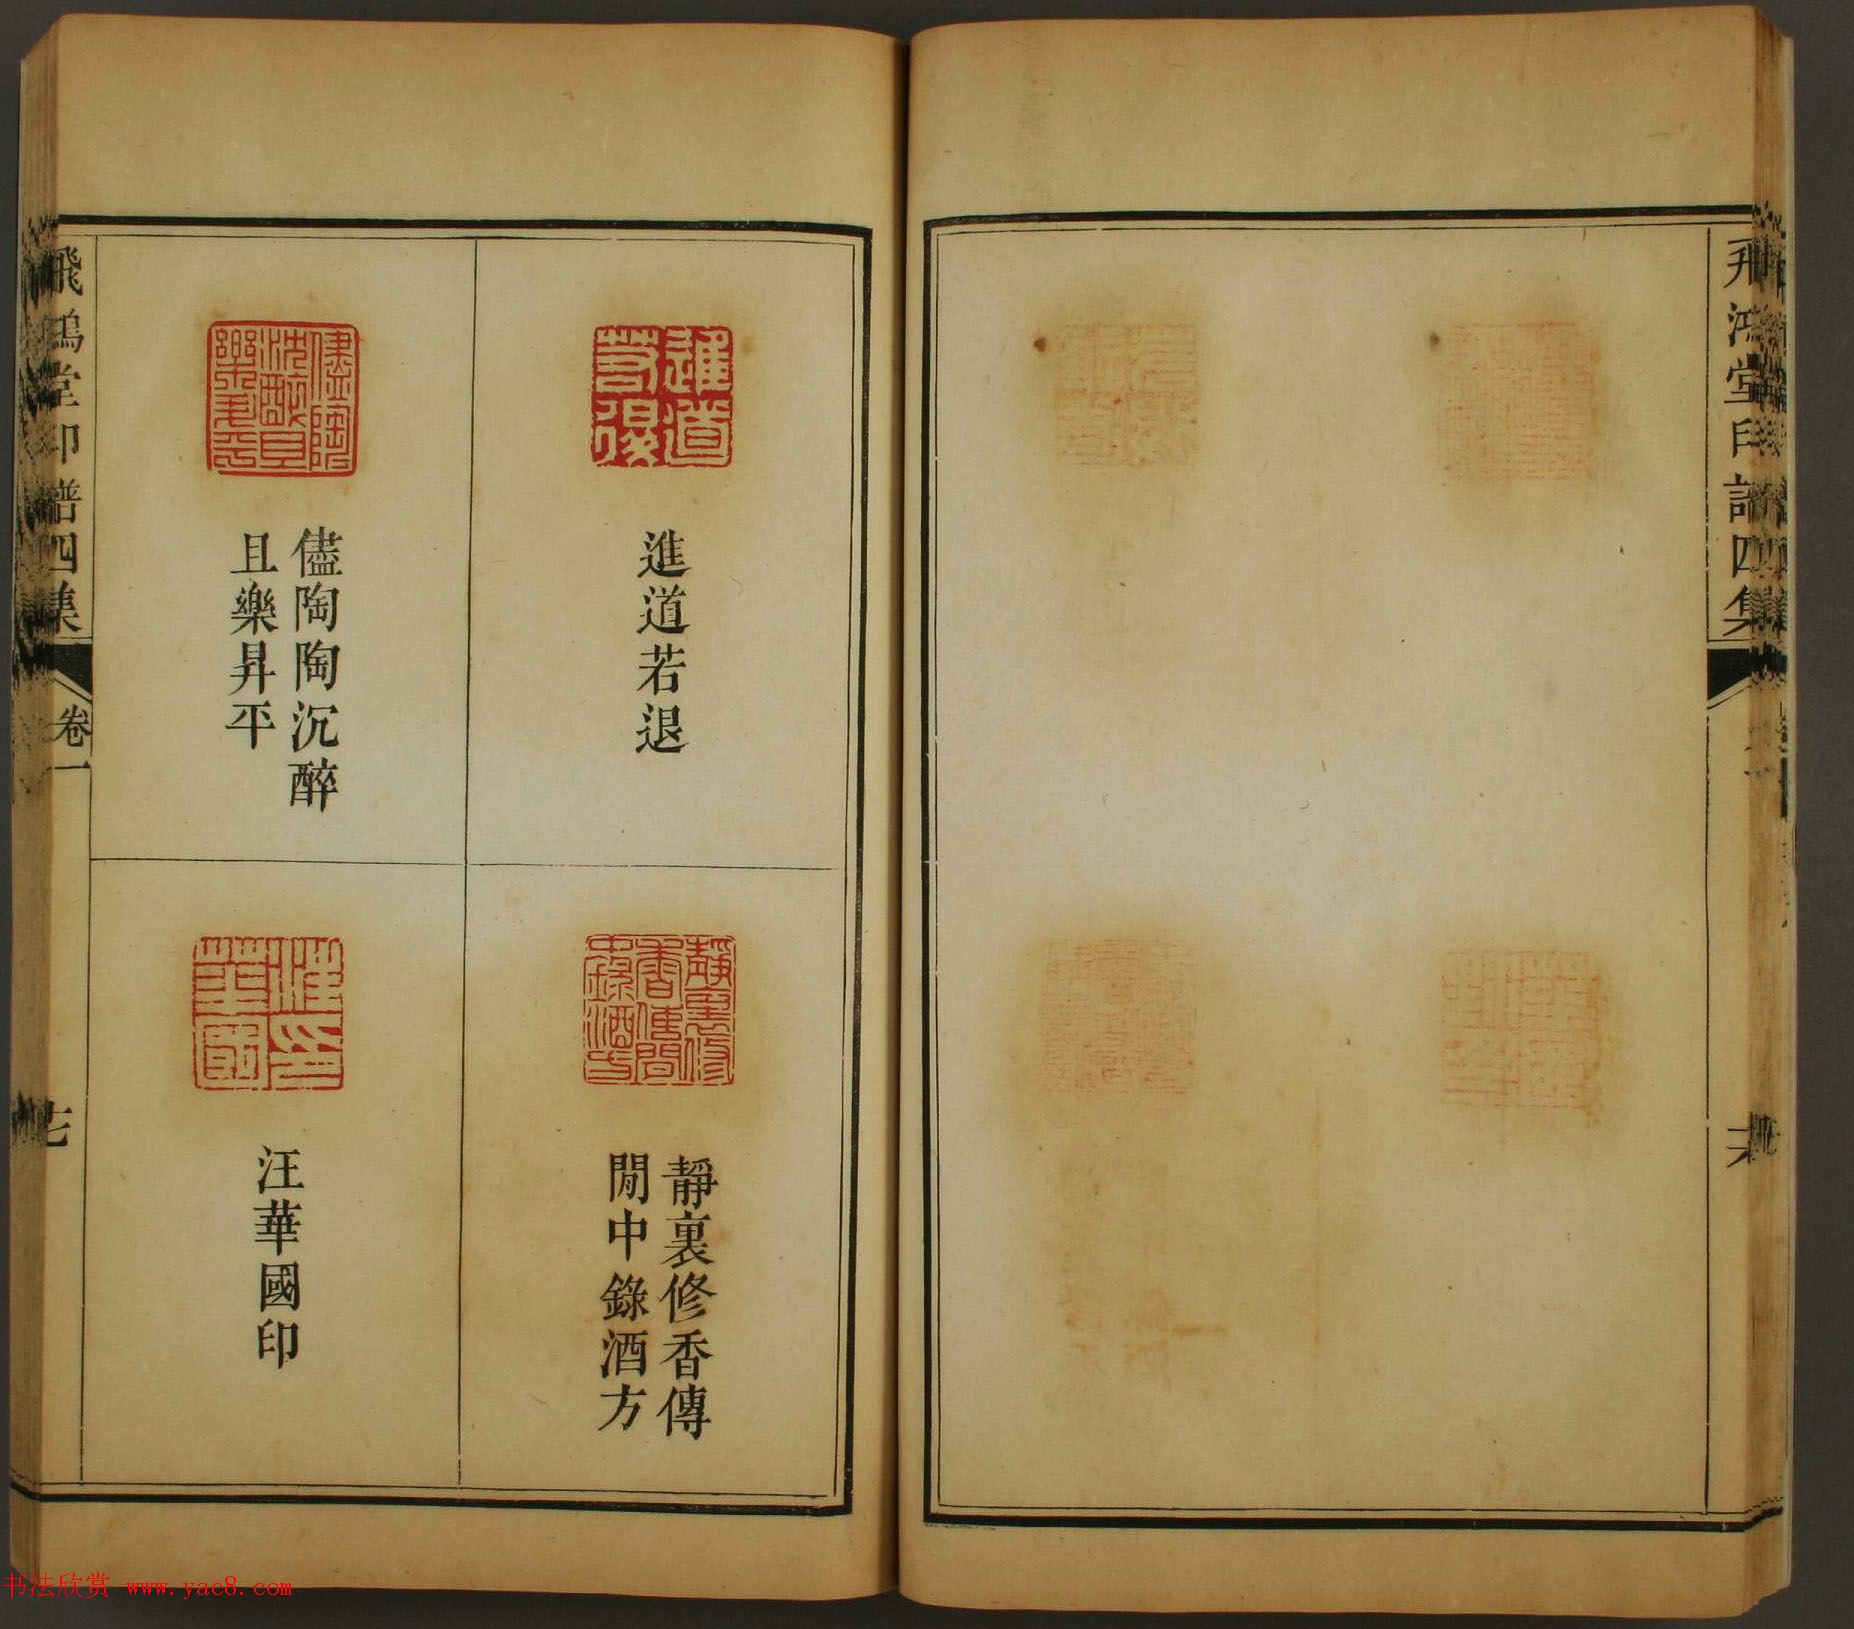 飛鴻堂印譜四集
進道若退
儘陶陶沉醉
且樂昇平
靜裏修香傳
閒中錄酒方
汪華國印
飛鴻堂印譜四集
卷一
七
书法欣赏 www.yac8.com